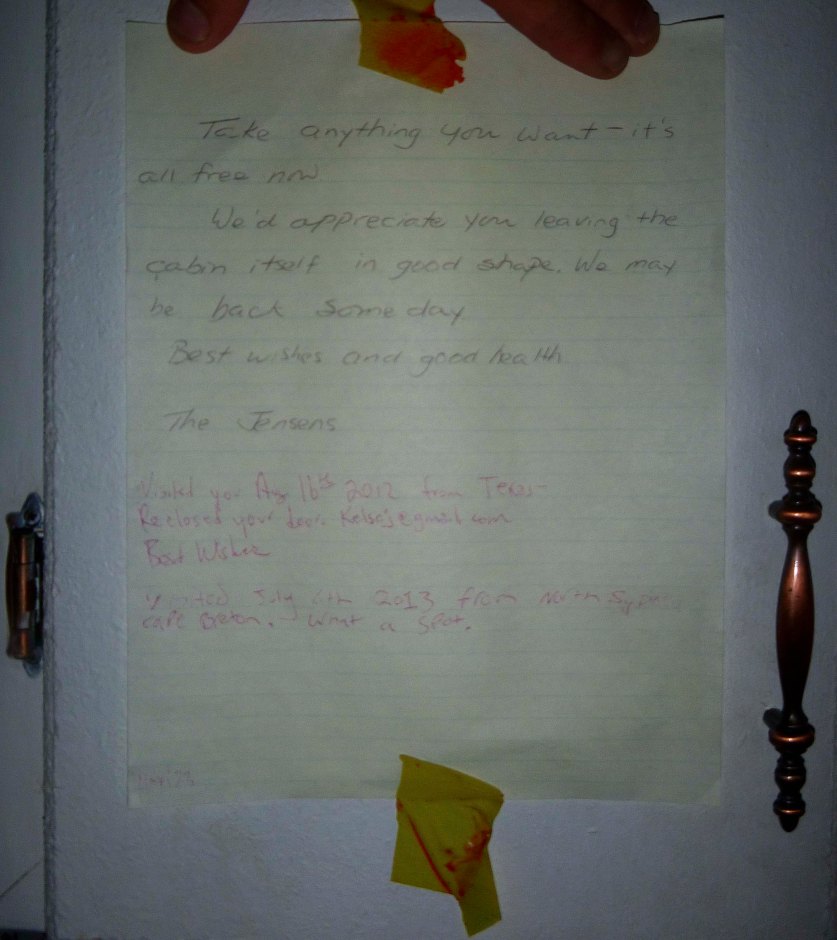 Take anything you want – it's
all free now
We'd appreciate you leaving the
cabin itself in good shape. We may
be back some day
Best wishes and good health
The Jensens
Visited you Aug 16th 2012 from Texas –
Reclosed your door.
Best Wishes
Visited July 2013 from North
Cape Breton. – What a spot.